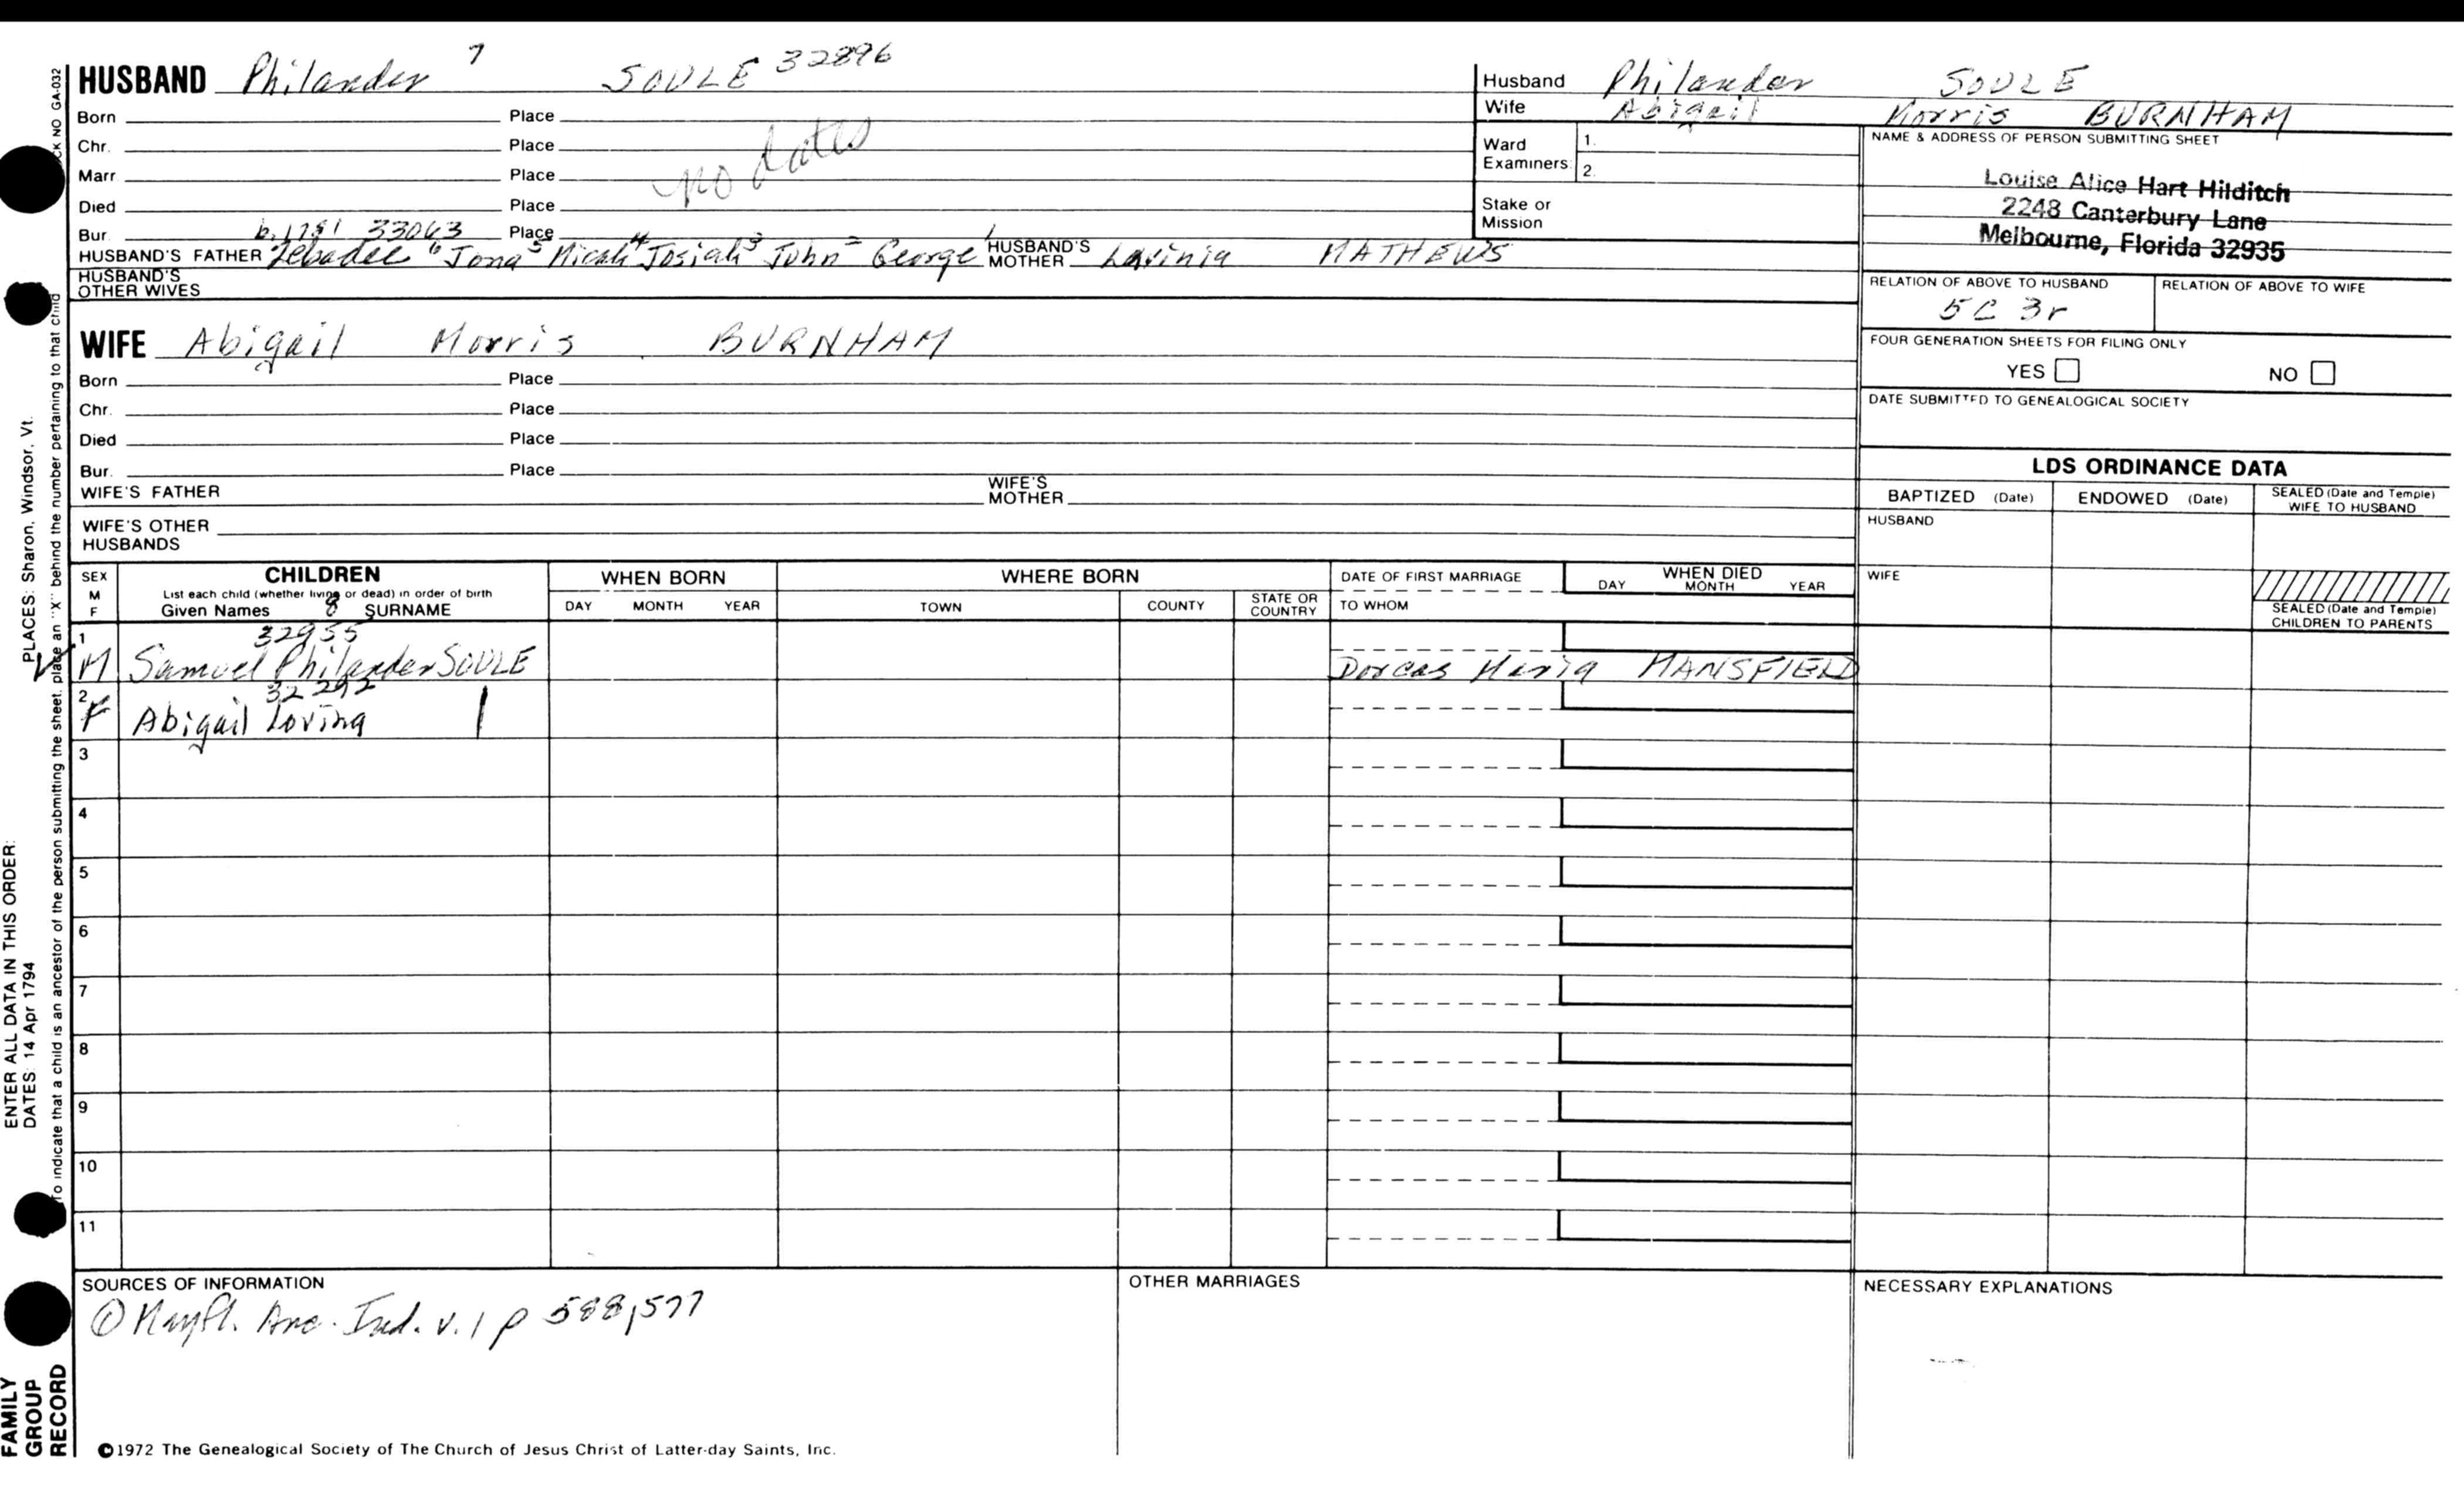 HUSBAND Philander 7 SOULE 32896
Born Place
Chr. Place
Marr. Place
no dates
Died Place
Bur. b. 1781 33063 Place
HUSBAND'S FATHER Zebadee 6 Jona 5 Micah 4 Josiah 3 John 2 George 1 HUSBAND'S MOTHER Lavinia MATHEWS
HUSBAND'S OTHER WIVES
WIFE Abigail Morris BURNHAM
Born Place
Chr. Place
Died Place
Bur. Place
WIFE'S FATHER WIFE'S MOTHER
WIFE'S OTHER HUSBANDS
Husband Philander SOULE
Wife Abigail Morris BURNHAM
Ward Examiners: 1. 2.
Stake or Mission
NAME & ADDRESS OF PERSON SUBMITTING SHEET
Louise Alice Hart Hilditch
2248 Canterbury Lane
Melbourne, Florida 32935
RELATION OF ABOVE TO HUSBAND RELATION OF ABOVE TO WIFE
5C 3r
FOUR GENERATION SHEETS FOR FILING ONLY
YES NO
DATE SUBMITTED TO GENEALOGICAL SOCIETY
LDS ORDINANCE DATA
BAPTIZED (Date) ENDOWED (Date) SEALED (Date and Temple) WIFE TO HUSBAND
HUSBAND
WIFE
SEALED (Date and Temple) CHILDREN TO PARENTS
SEX M F CHILDREN WHEN BORN WHERE BORN DATE OF FIRST MARRIAGE WHEN DIED
List each child (whether living or dead) in order of birth
Given Names 8 SURNAME DAY MONTH YEAR TOWN COUNTY STATE OR COUNTRY TO WHOM DAY MONTH YEAR
1 32955
M Samuel Philander SOULE Dorcas Maria MANSFIELD
2 32292
F Abigail Loving
3
4
5
6
7
8
9
10
11
SOURCES OF INFORMATION
① Mayfl. Anc. Ind. v. 1 p 588, 577
OTHER MARRIAGES
NECESSARY EXPLANATIONS
©1972 The Genealogical Society of The Church of Jesus Christ of Latter-day Saints, Inc.
FAMILY GROUP RECORD
ENTER ALL DATA IN THIS ORDER:
DATES: 14 Apr 1794 PLACES: Sharon, Windsor, Vt.
To indicate that a child is an ancestor of the person submitting the sheet, place an "X" behind the number pertaining to that child
CK NO GA-032